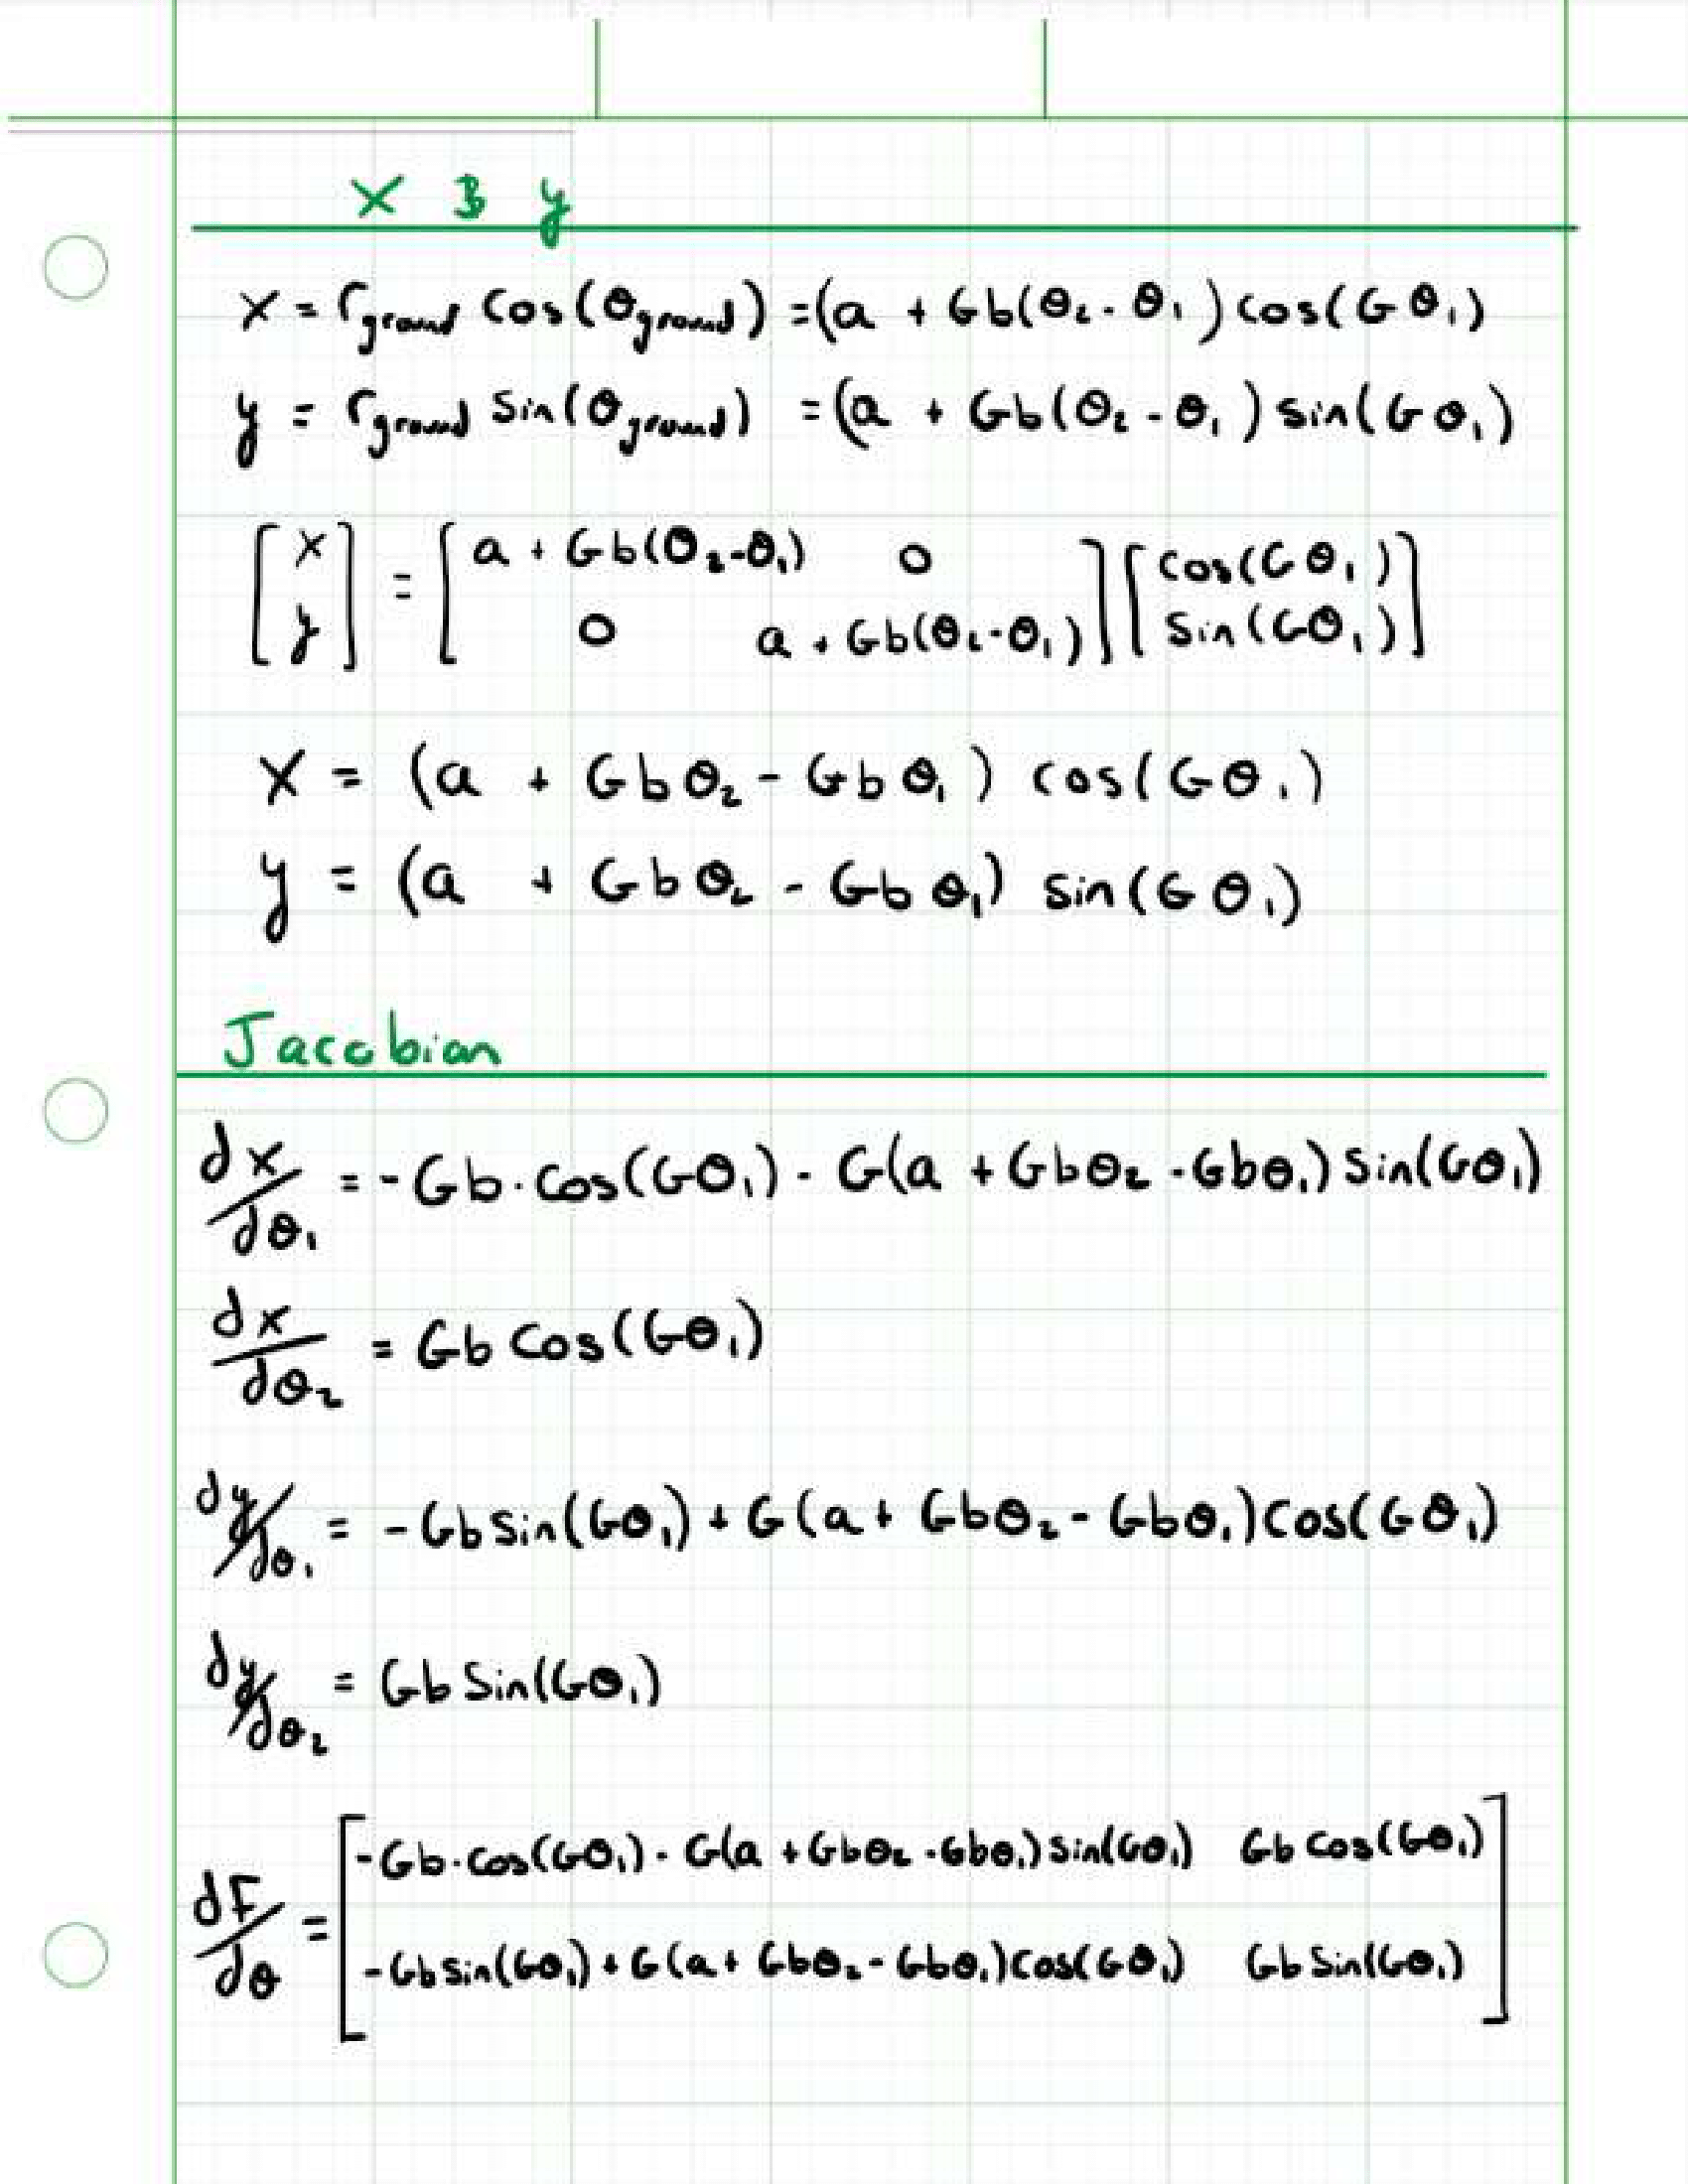 x & y
x = r_ground cos(θ_ground) = (a + Gb(θ₂ - θ₁) cos(Gθ₁)
y = r_ground sin(θ_ground) = (a + Gb(θ₂ - θ₁) sin(Gθ₁)
[x y] = [a + Gb(θ₂-θ₁) 0 0 a + Gb(θ₂-θ₁)] [cos(Gθ₁) sin(Gθ₁)]
x = (a + Gbθ₂ - Gbθ₁) cos(Gθ₁)
y = (a + Gbθ₂ - Gbθ₁) sin(Gθ₁)
Jacobian
dx/dθ₁ = -Gb·cos(Gθ₁) - G(a + Gbθ₂ - Gbθ₁) sin(Gθ₁)
dx/dθ₂ = Gb cos(Gθ₁)
dy/dθ₁ = -Gb sin(Gθ₁) + G(a + Gbθ₂ - Gbθ₁) cos(Gθ₁)
dy/dθ₂ = Gb sin(Gθ₁)
dF/dθ = [-Gb·cos(Gθ₁) - G(a + Gbθ₂ - Gbθ₁) sin(Gθ₁) Gb cos(Gθ₁)
-Gb sin(Gθ₁) + G(a + Gbθ₂ - Gbθ₁) cos(Gθ₁) Gb sin(Gθ₁)]